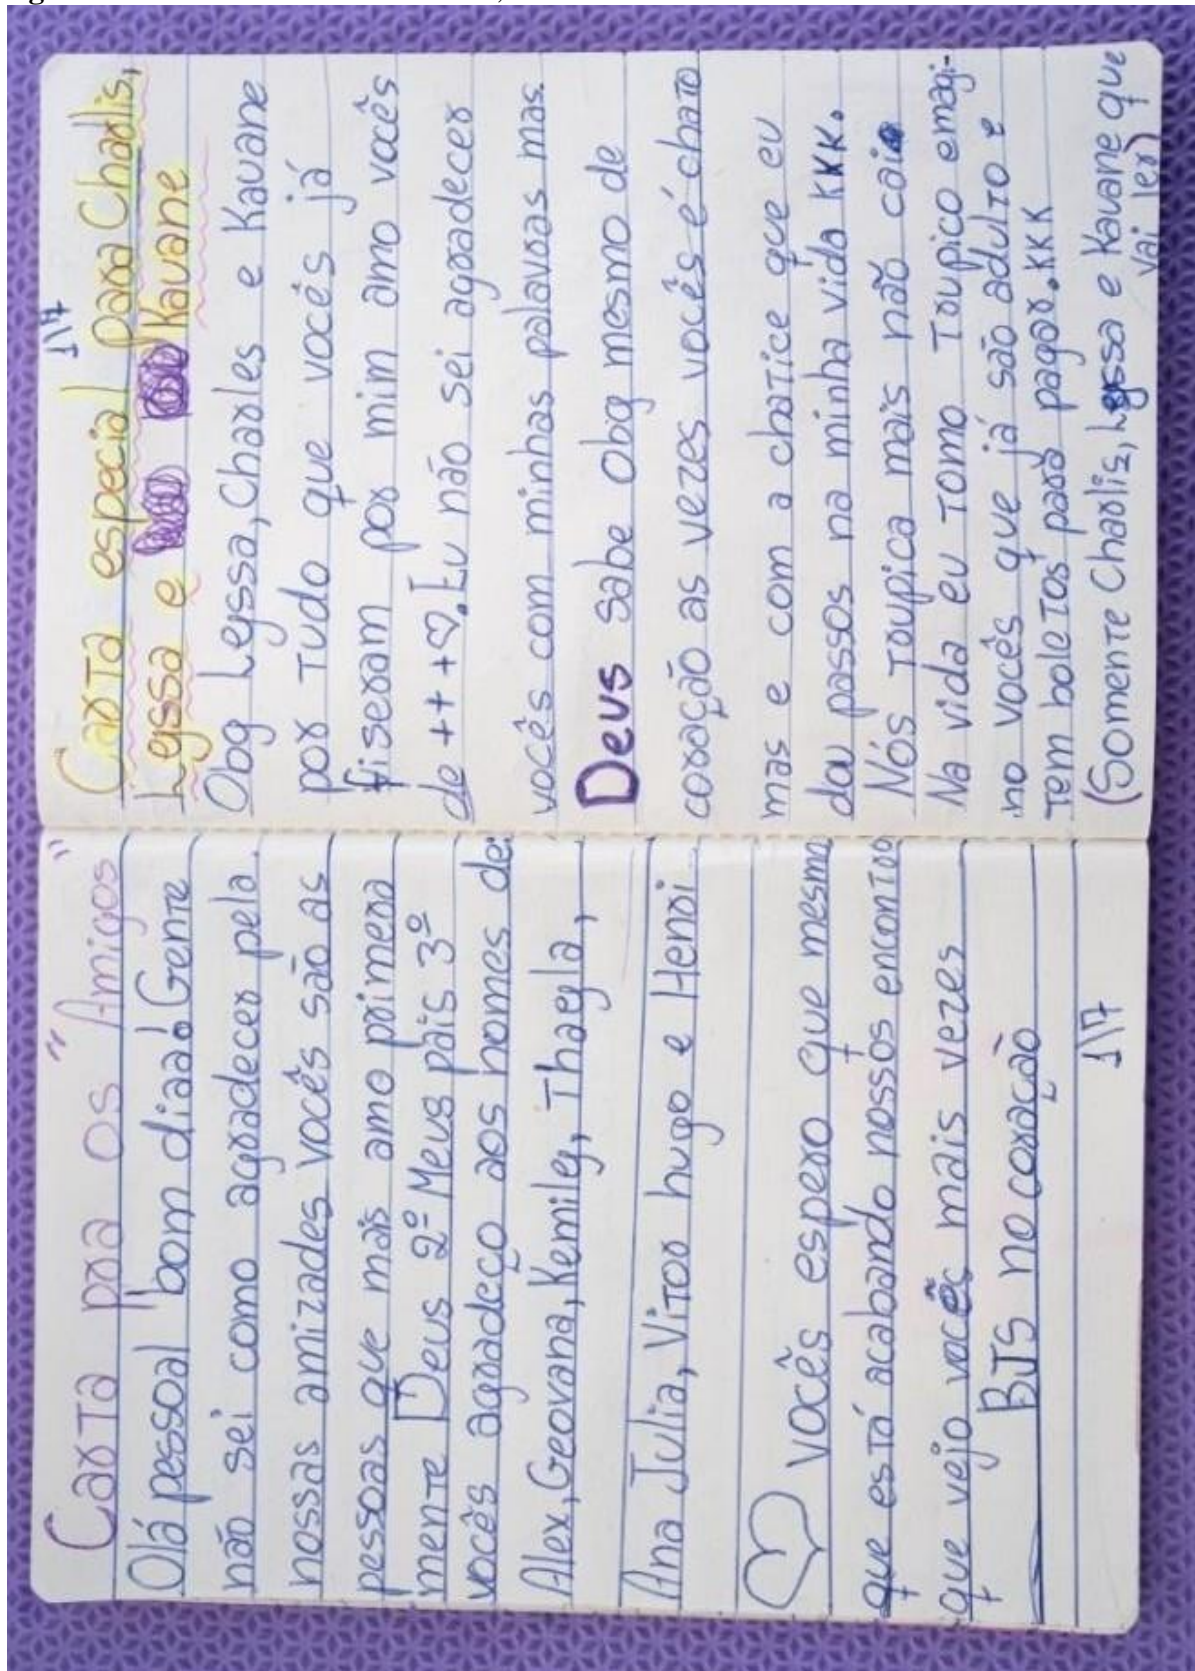 Carta pra os "Amigos"
Olá pessoal bom diaa! Gente
não sei como agradecer pela
nossas amizades vocês são as
pessoas que mais amo primera
mente Deus 2º Meus pais 3º
vocês agradeço aos nomes de:
Alex, Geovana, Kemiley, Thaeyla,
Ana Julia, Vitor hugo e Henri
♡ vocês espero que mesmo
que está acabando nossos encontros
que vejo vocês mais vezes
BJS no coração
1\7
1\7
Carta especial para Charlis,
Leyssa e Kauane
Obg Leyssa, Charles e Kauane
por tudo que vocês já
fiseram por mim amo vocês
de +++♡. Eu não sei agradecer
vocês com minhas palavras mas.
Deus sabe Obg mesmo de
coração as vezes vocês é chato
mas e com a chatice que eu
dou passos na minha vida KKK.
Nós troupica mais não cai
Na vida eu tomo troupico emagi-
no vocês que já são adulto e
tem boletos para pagar. KKK
(Somente Charlis, Leyssa e Kauane que
vai ler)